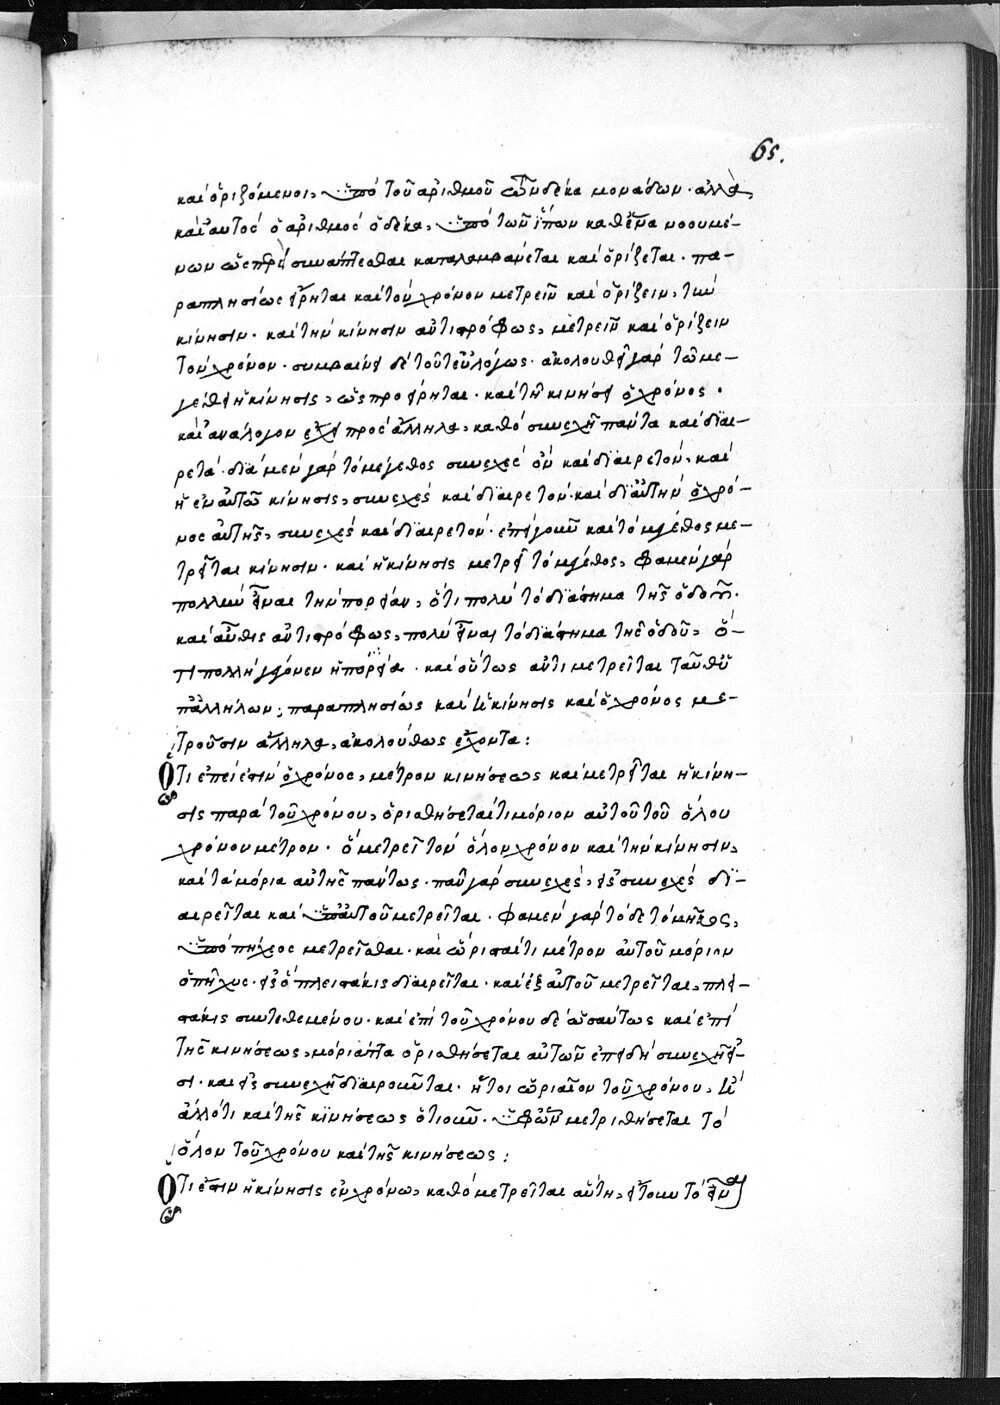 65.
καὶ ὁριζόμενοι, ὑπὸ τοῦ ἀριθμοῦ τῶν δέκα μονάδων. ἀλλὰ
καὶ αὐτὸς ὁ ἀριθμὸς ὁ δέκα, ὑπὸ τῶν ἵππων καθ' ἕνα νοουμέ-
νων συνάπτεσθαι καταλαμβάνεται καὶ ὁρίζεται. πα-
ραπλησίως εἴρηται καὶ τὸν χρόνον μετρεῖν καὶ ὁρίζειν, τὴν
κίνησιν. καὶ τὴν κίνησιν ἀντιστρόφως, μετρεῖν καὶ ὁρίζειν
τὸν χρόνον. συμβαίνει δὲ τοῦτ' εὐλόγως. ἀκολουθεῖ γὰρ τῷ με-
γέθει ἡ κίνησις, ὡς προείρηται. καὶ τῇ κινήσει ὁ χρόνος.
καὶ ἀνάλογον ἔχει πρὸς ἄλληλα, καθὸ συνεχῆ πάντα καὶ διαι-
ρετά. διὰ μὲν γὰρ τὸ μέγεθος συνεχὲς ὂν καὶ διαιρετὸν, καὶ
ἡ ἐν αὐτῷ κίνησις, συνεχὲς καὶ διαιρετόν. καὶ δι' αὐτὴν ὁ χρό-
νος αὐτῆς, συνεχὲς καὶ διαιρετόν. ἐπὶ γοῦν καὶ τὸ μέγεθος με-
τρεῖται κίνησιν. καὶ ἡ κίνησις μετρεῖ τὸ μέγεθος, φαμὲν γὰρ
πολλὴν εἶναι τὴν πορείαν, ὅτι πολὺ τὸ διάστημα τῆς ὁδοῦ.
καὶ αὖθις ἀντιστρόφως, πολὺ εἶναι τὸ διάστημα τῆς ὁδοῦ, ὅ-
τι πολλὴ γέγονεν ἡ πορεία. καὶ οὕτως ἀντιμετρεῖται ταῦθ' ὑ
π' ἀλλήλων; παραπλησίως καὶ ἡ κίνησις καὶ ὁ χρόνος με-
τροῦσιν ἄλληλα, ἀκολούθως ἔχοντα:
Ὅτι ἐπεὶ ἐστὶν ὁ χρόνος, μέτρον κινήσεως καὶ μετρεῖται ἡ κίνη-
σις παρὰ τοῦ χρόνου, ὁρισθήσεταί τι μόριον αὐτοῦ τοῦ ὅλου
χρόνου μέτρον. ὃ μετρεῖ τὸν ὅλον χρόνον καὶ τὴν κίνησιν,
καὶ τὰ μόρια αὐτῆς πάντως. πᾶν γὰρ συνεχὲς, εἰς συνεχὲς δι-
αιρεῖται καὶ ὑπ' αὐτοῦ μετρεῖται. φαμὲν γὰρ τόδε τὸ μῆκος,
ὑπὸ πήχεος μετρεῖσθαι. καὶ ὥρισταί τι μέτρον αὐτοῦ μόριον
ὁ πῆχυς. εἰς ὃ πλειστάκις διαιρεῖται. καὶ ἐξ αὐτοῦ μετρεῖται, πλει-
στάκις συντεθεμένου. καὶ ἐπὶ τοῦ χρόνου δὲ ὡσαύτως καὶ ἐπὶ
τῆς κινήσεως, μόριά τινα ὁρισθήσεται αὐτῶν ἐπειδὴ συνεχῆ εἰ-
σι. καὶ εἰς συνεχῆ διαιροῦνται. ἤτοι ὡριαῖον τοῦ χρόνου, ἢ
ἄλλό τι καὶ τῆς κινήσεως ὁτιοῦν. ὑφ' ὧν μετρηθήσεται τὸ
ὅλον τοῦ χρόνου καὶ τῆς κινήσεως:
Ὅτι ἐστὶν ἡ κίνησις ἐν χρόνῳ, καθὸ μετρεῖται αὕτη, τὸ εἶναι